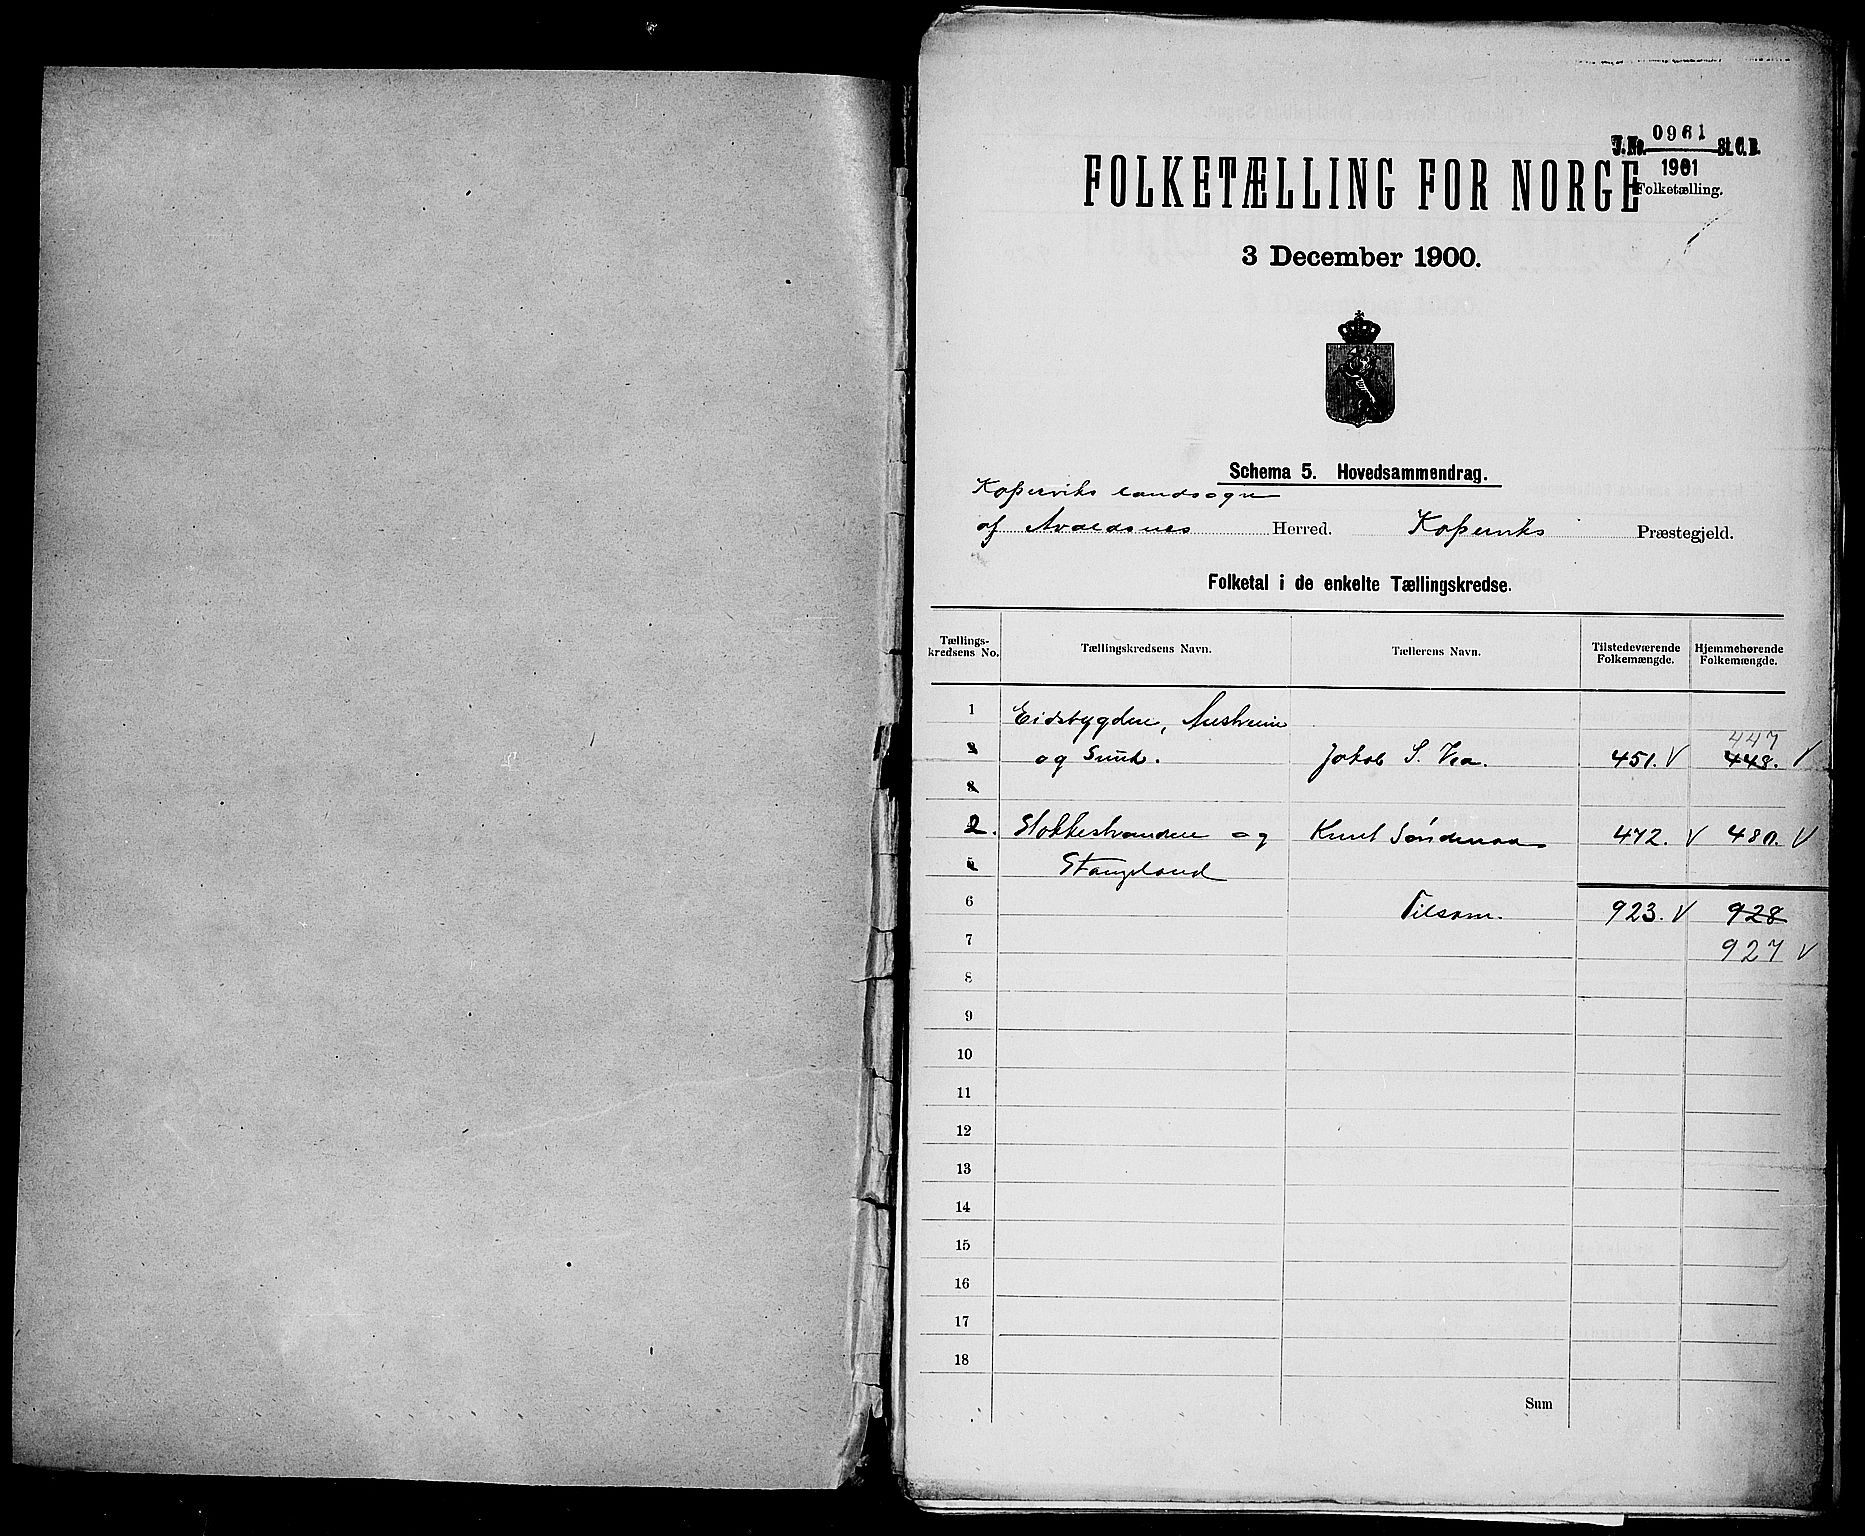 J. No. 0961 St. C. B.
1901
Folketælling.
FOLKETÆLLING FOR NORGE
3 December 1900.
Schema 5. Hovedsammendrag.
Koperviks landsogn
af Avaldsnes Herred. Koperviks Præstegjeld.
Folketal i de enkelte Tællingskredse.
Tællings-
kredsens No.
Tællingskredsens Navn.
Tællerens Navn.
Tilstedeværende
Folkemængde.
Hjemmehørende
Folkemængde.
1 Eidsbygden, Austreim
447
2 og Sund. Jakob S. Vea. 451. V 448. V
3
2. Stokkestranden og Knut Søndenaa 472. V 480. V
5 Stangeland
6 Tilsam. 923. V 928
7 927 V
8
9
10
11
12
13
14
15
16
17
18
Sum